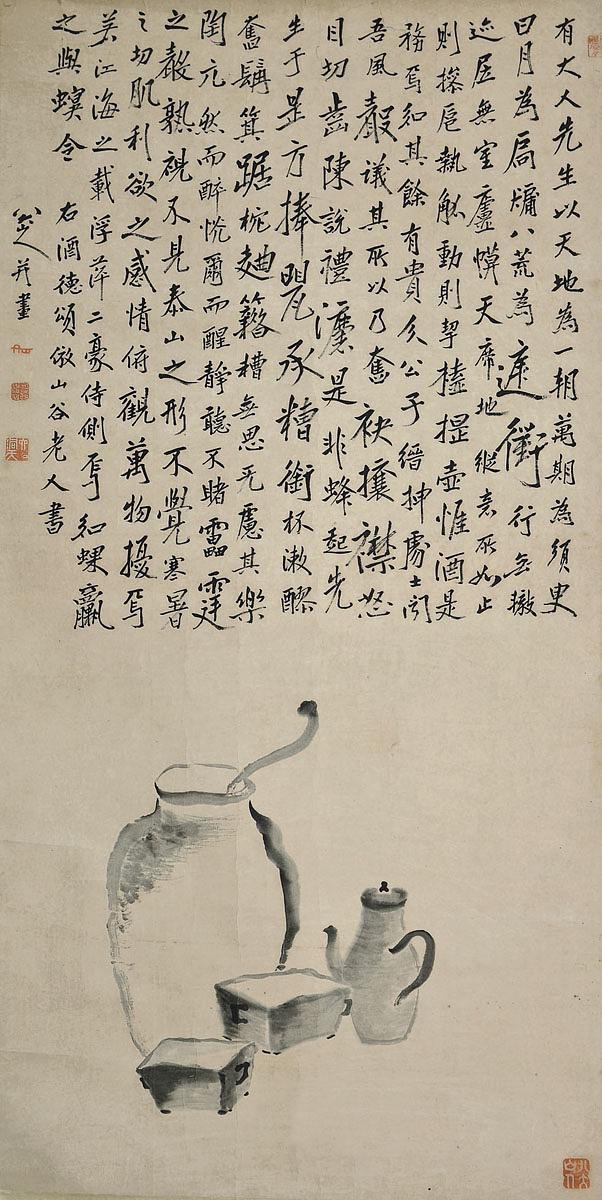 有大人先生以天地為一朝萬期為須臾
日月為扃牖八荒為庭衢行無轍
迹居無室廬幙天席地縱意所如止
則操巵執觚動則挈榼提壺惟酒是
務焉知其餘有貴介公子縉紳處士聞
吾風聲議其所以乃奮袂攘襟怒
目切齒陳說禮灋是非蜂起先
生于是方捧甖承糟銜杯漱醪
奮髯箕踞枕麯籍糟無思无慮其樂
陶兀然而醉恍爾而醒靜聽不睹雷霆
之聲熟視不見泰山之形不覺寒暑
之切肌利欲之感情俯觀萬物擾焉
若江海之載浮萍二豪侍側焉如蜾蠃
之與螟令
右酒德頌倣山谷老人書
八大山人并畫